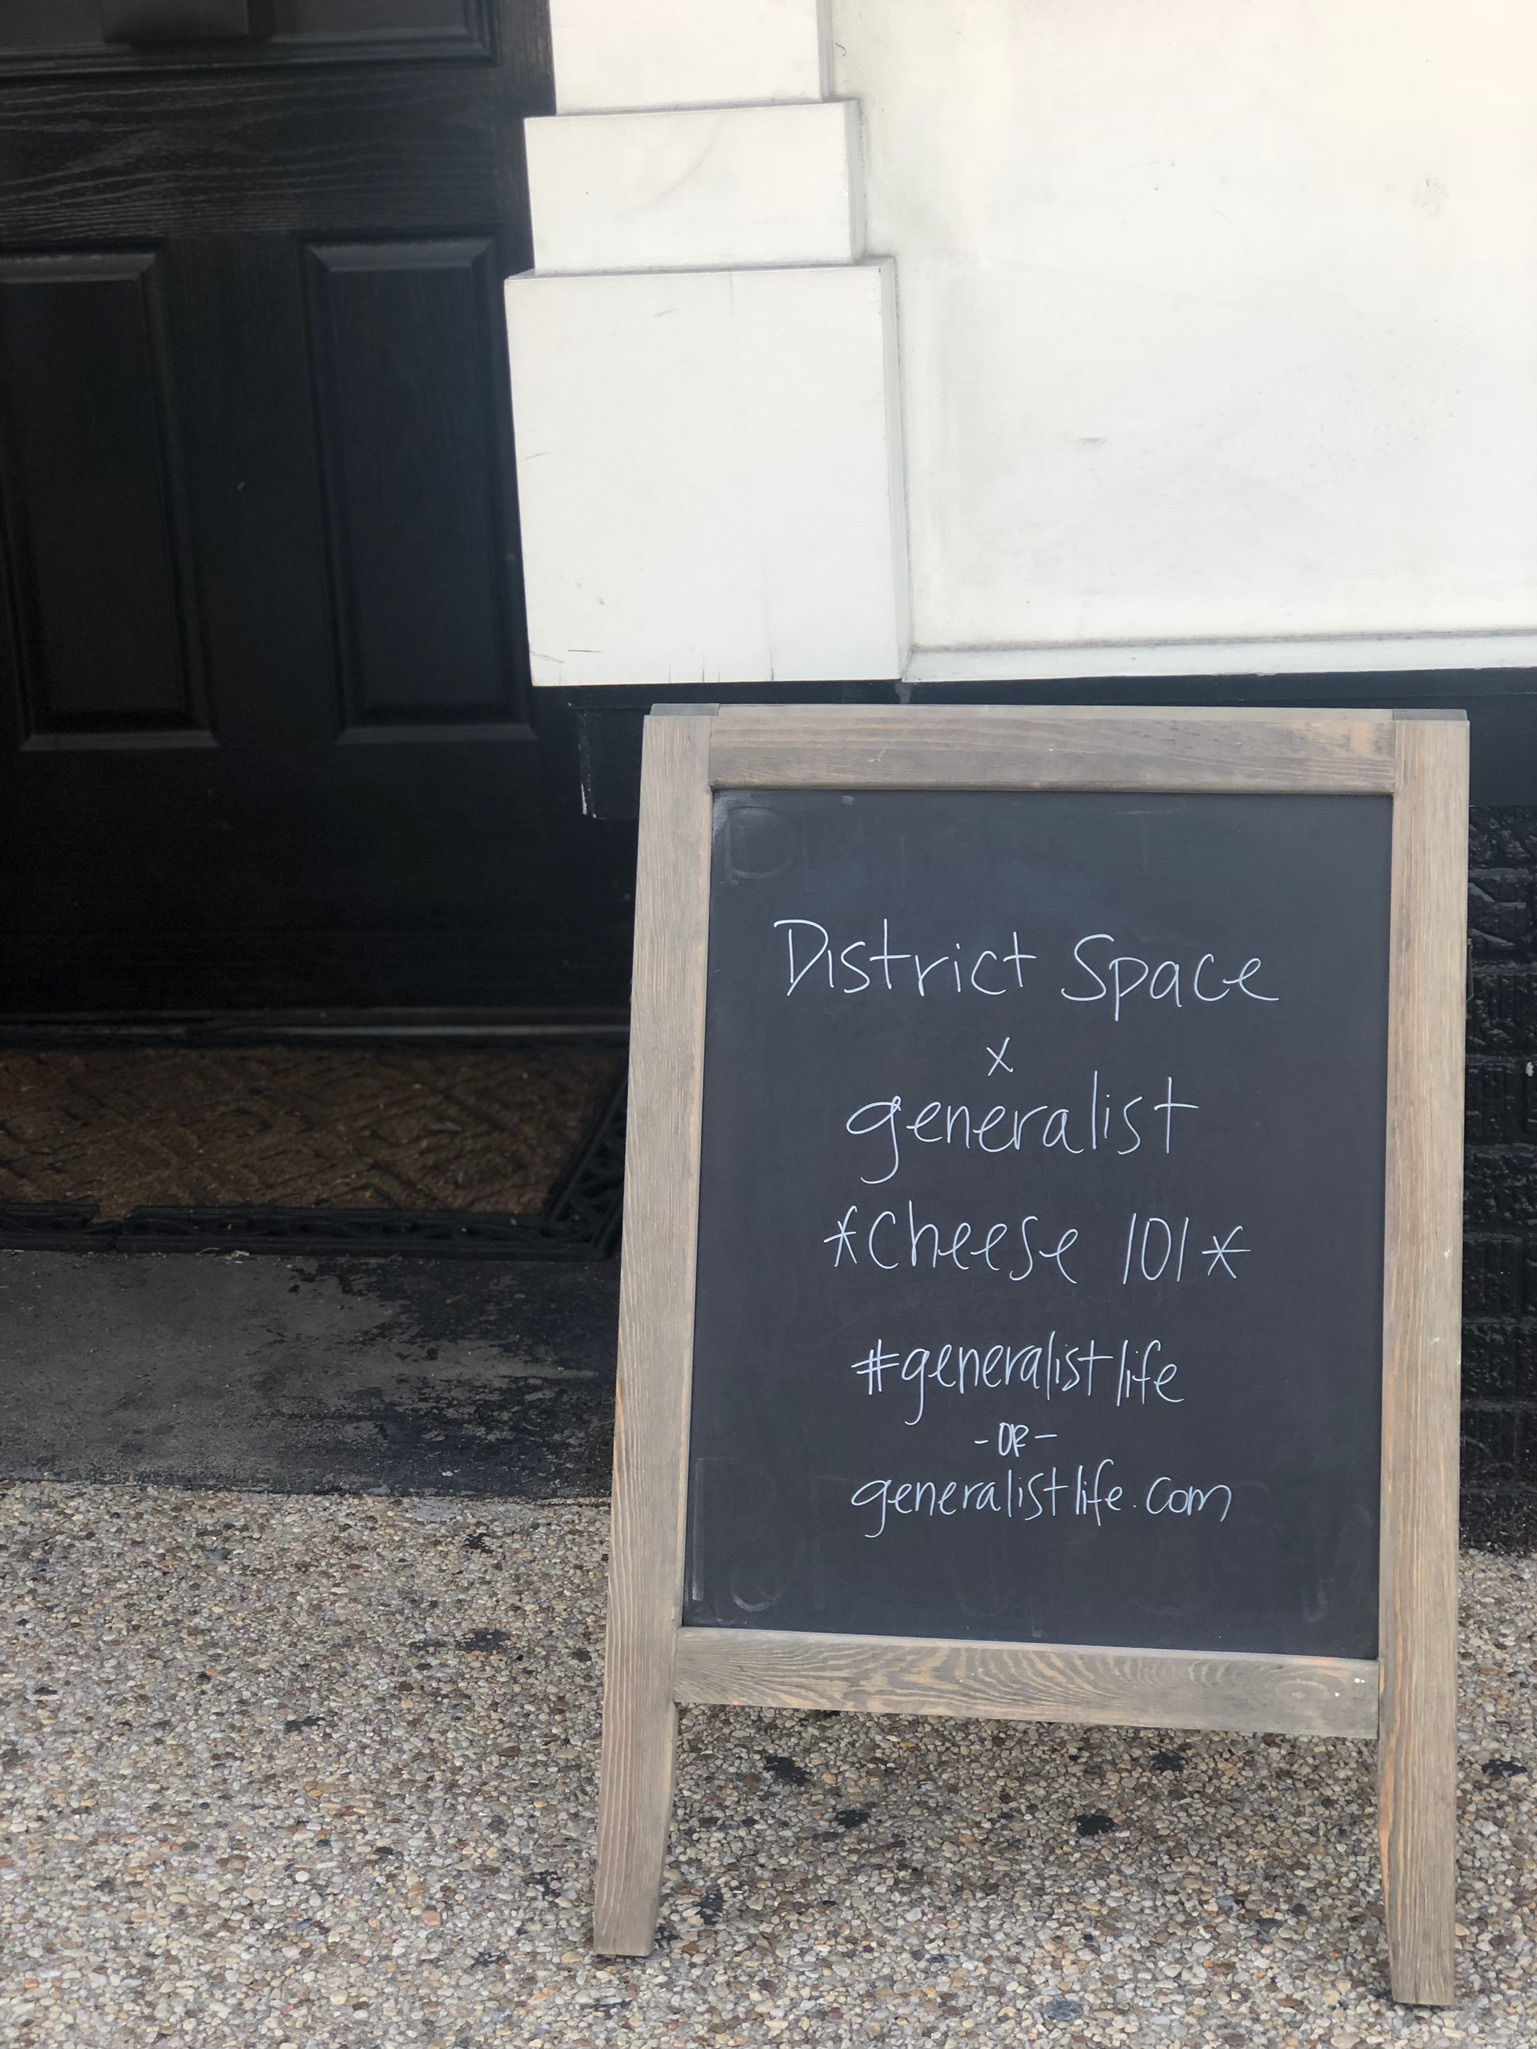 District Space
x
generalist
*Cheese 101*
#generalistlife
-OR-
generalistlife.com